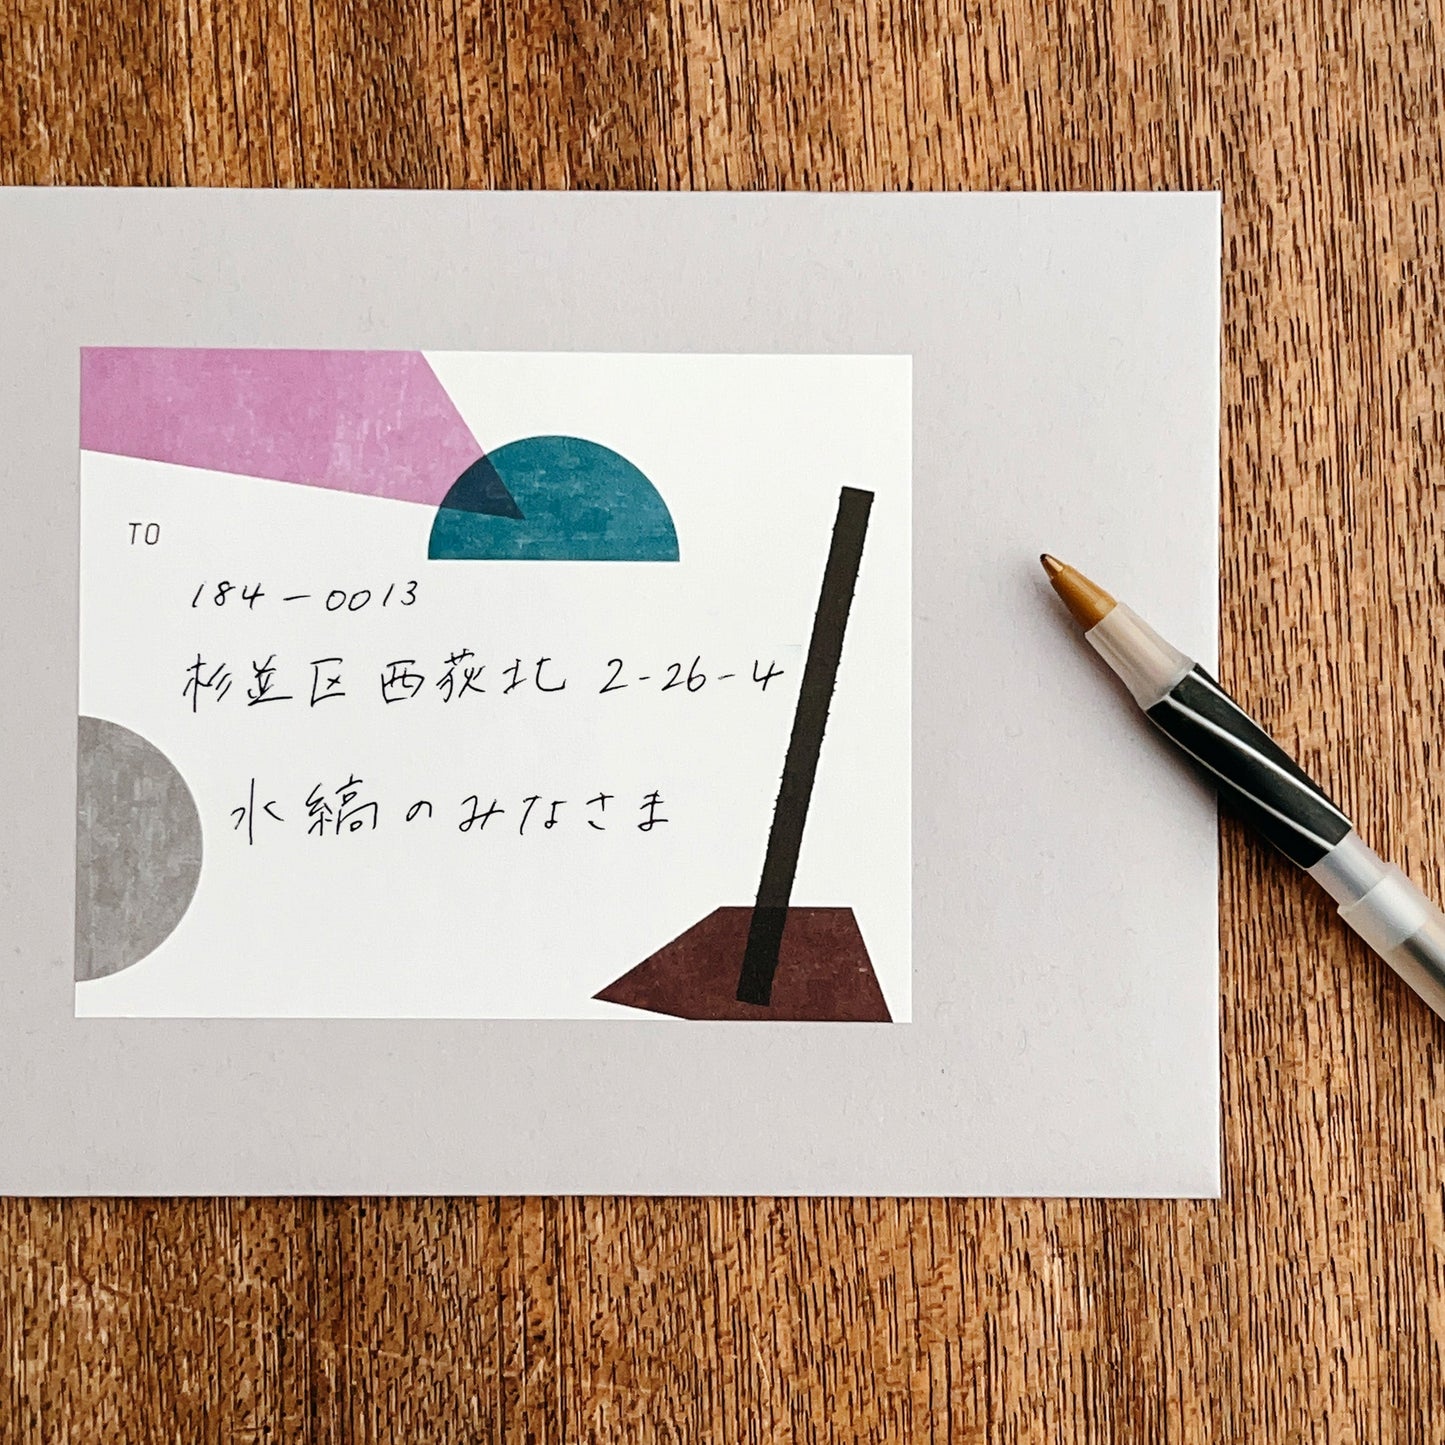 TO
184-0013
杉並区 西荻北 2-26-4
水縞のみなさま